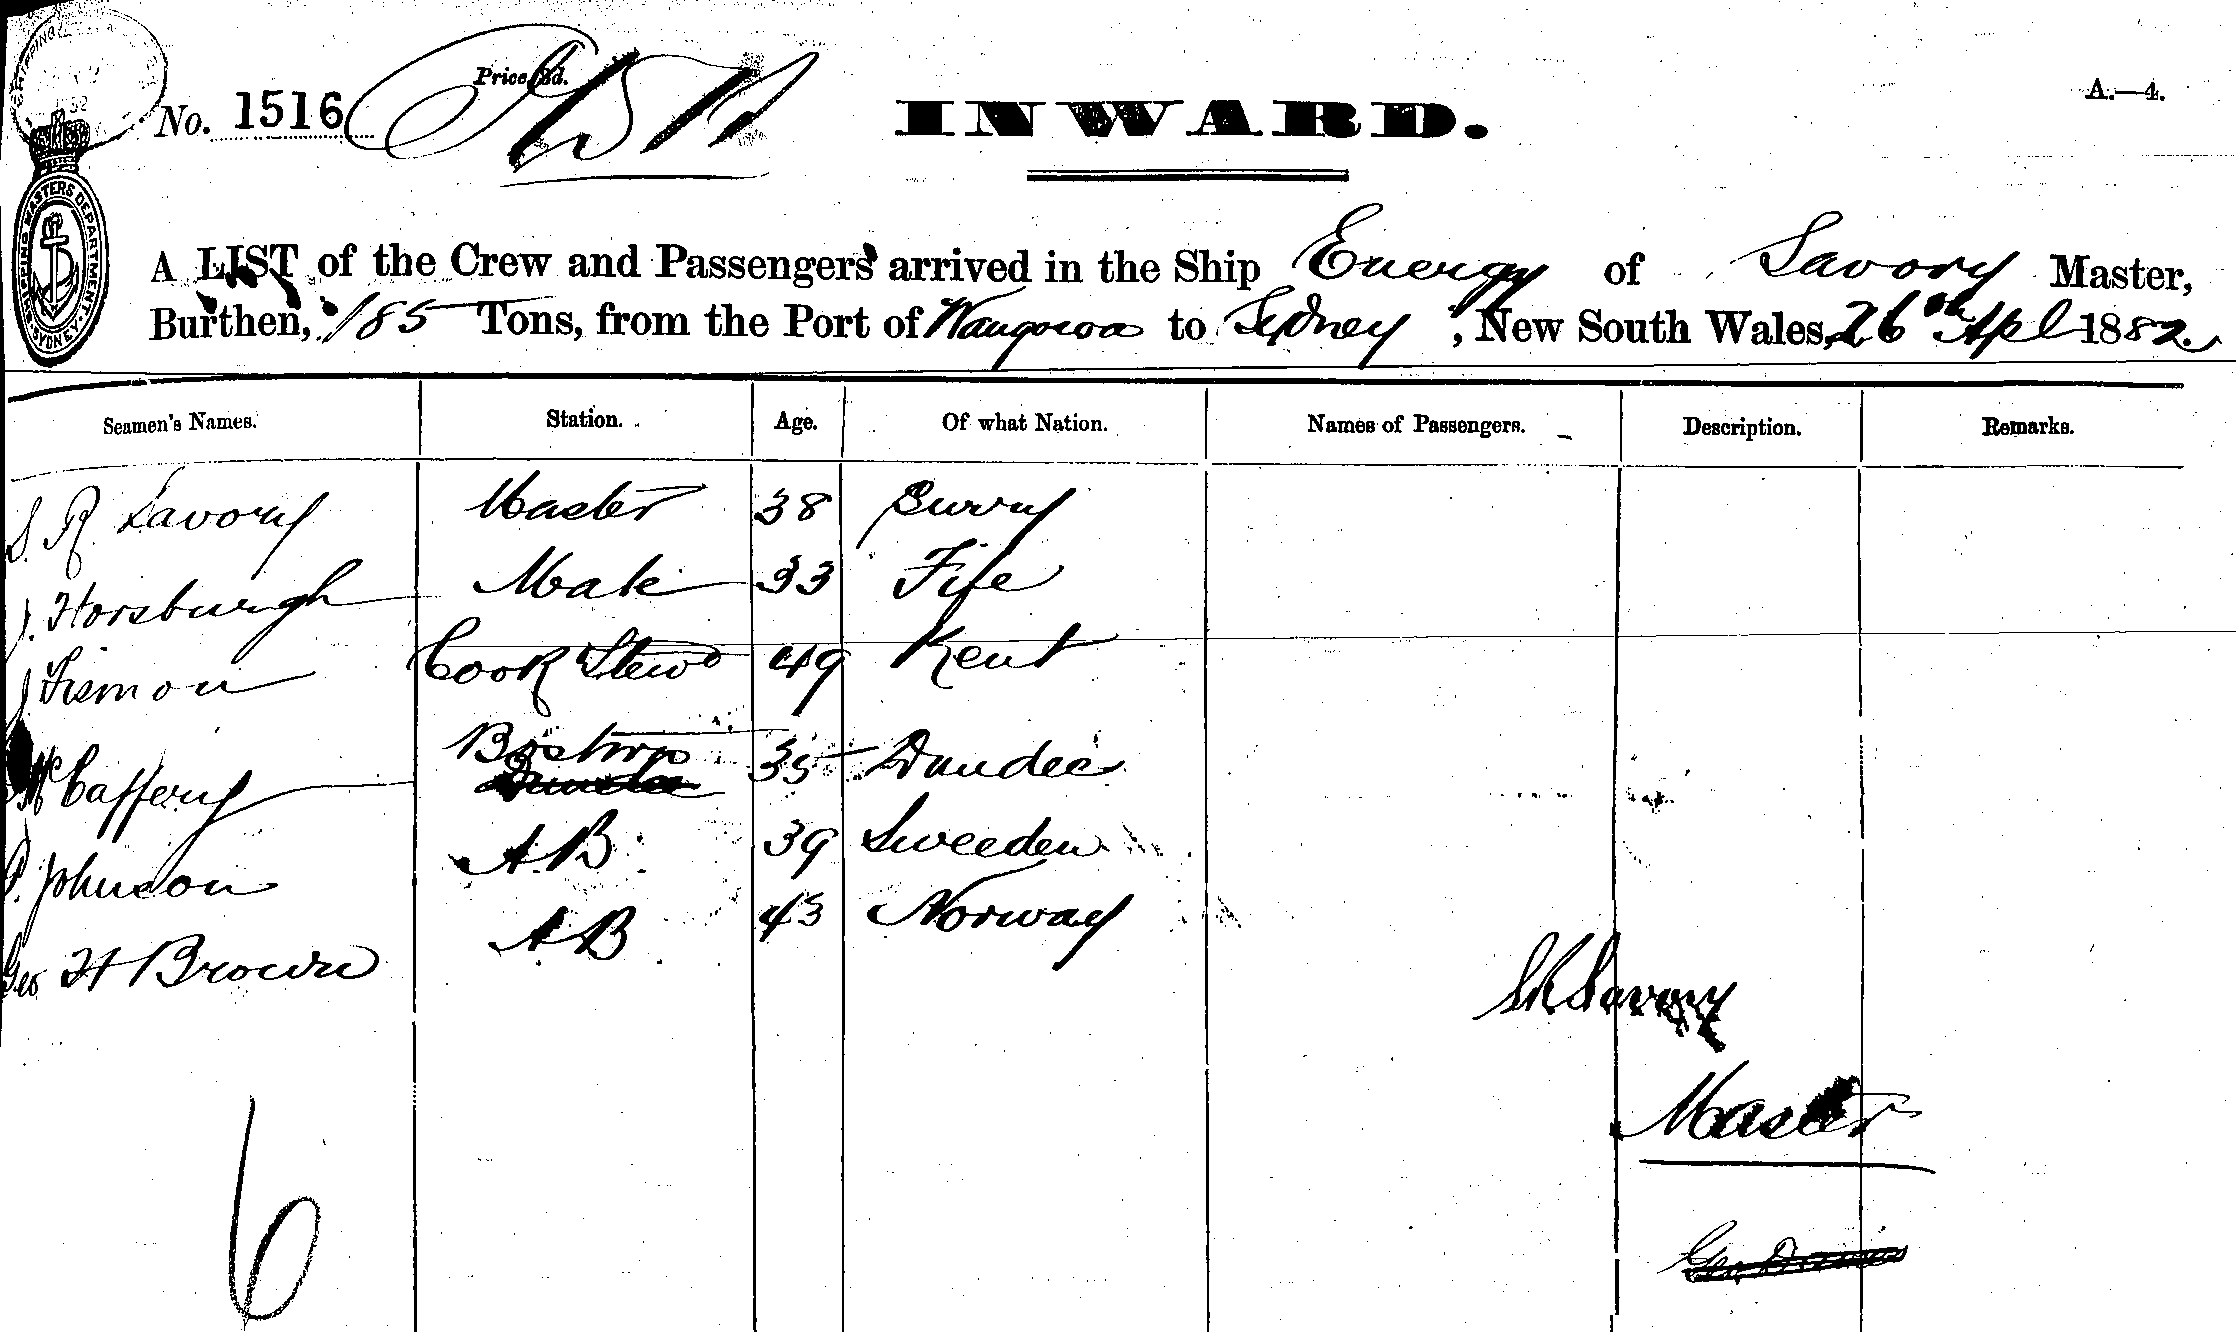 Price 3d.
No. 1516
A.—4.
INWARD.
SHIPPING MASTERS DEPARTMENT SYDNEY
A LIST of the Crew and Passengers arrived in the Ship Energy of Savory Master,
Burthen, 185 Tons, from the Port of Wangoroa to Sydney, New South Wales, 26th Apl 1882.
Seamen's Names. Station. Age. Of what Nation. Names of Passengers. Description. Remarks.
S. R. Savory Master 38 Surry
J. Horsburgh Mate 33 Fife
J Cook Stewd 49 Kent
McCaffery Boston 35 Dundee
P. Johnson A B 39 Sweeden
Geo H Brown A B 43 Norway
S R Savory
Master
6